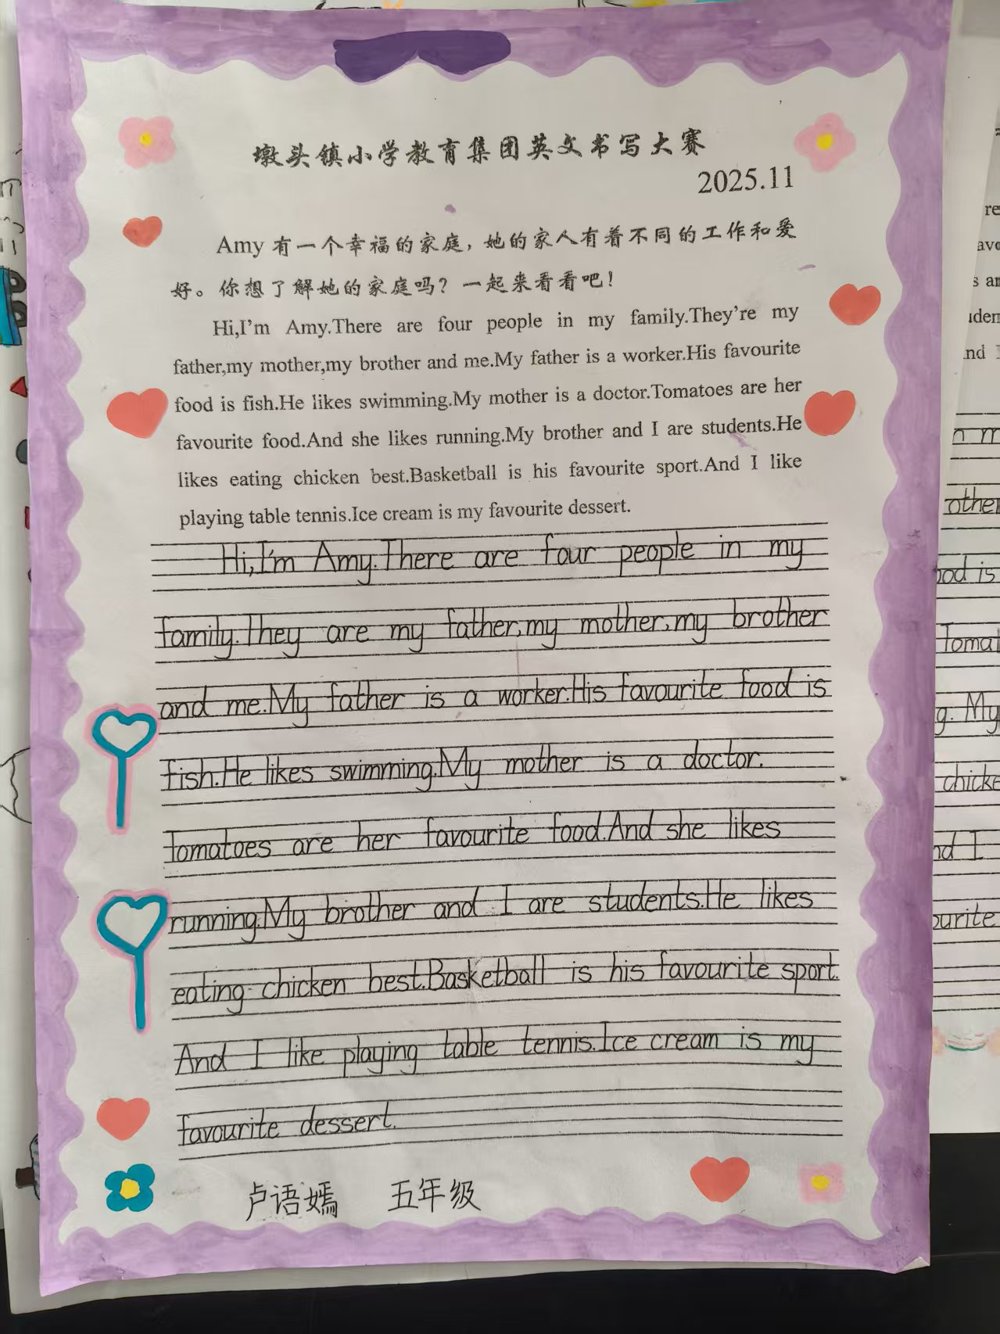 墩头镇小学教育集团英文书写大赛
2025.11
Amy 有一个幸福的家庭，她的家人有着不同的工作和爱
好。你想了解她的家庭吗？一起来看看吧！
Hi,I'm Amy.There are four people in my family.They're my
father,my mother,my brother and me.My father is a worker.His favourite
food is fish.He likes swimming.My mother is a doctor.Tomatoes are her
favourite food.And she likes running.My brother and I are students.He
likes eating chicken best.Basketball is his favourite sport.And I like
playing table tennis.Ice cream is my favourite dessert.
Hi,I'm Amy.There are four people in my
family.They are my father,my mother,my brother
and me.My father is a worker.His favourite food is
fish.He likes swimming.My mother is a doctor.
Tomatoes are her favourite food.And she likes
running.My brother and I are students.He likes
eating chicken best.Basketball is his favourite sport.
And I like playing table tennis.Ice cream is my
favourite dessert.
卢语嫣 五年级